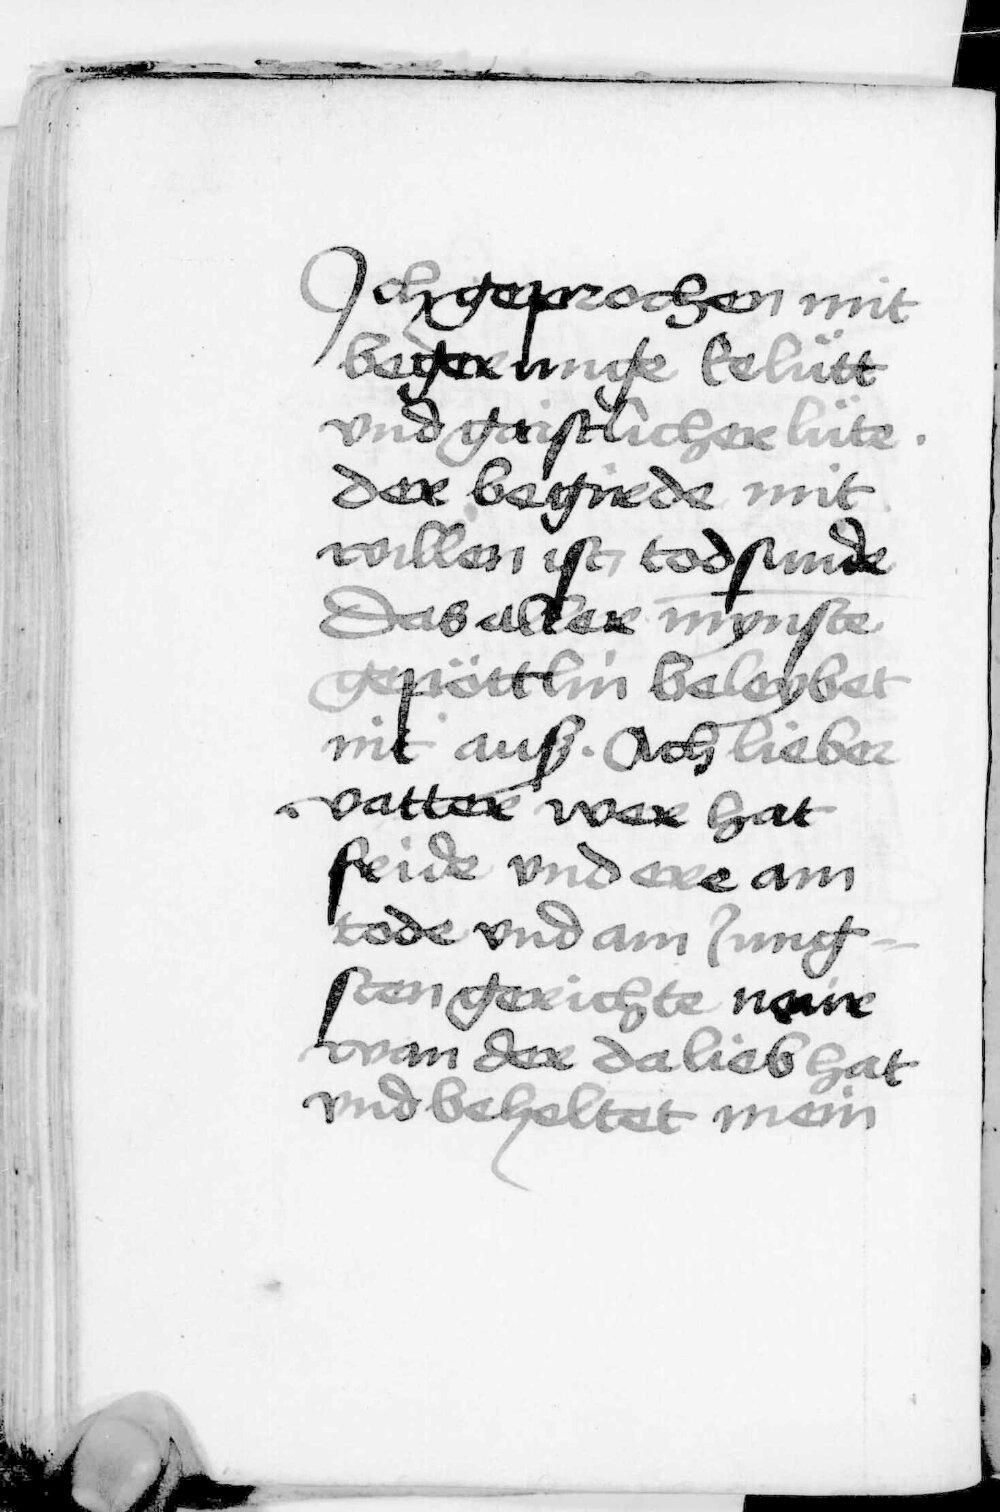 Ich geprochen mit
begerunge kelütt
vnd gaistlicher lüte .
der begirde mit
willen ist todsunde
Das aller mynste
gepöttlin beleybet
nit auß . Ach lieber
vatter wer hat
freide vnd ere am
tode vnd am Jung-
sten gerichte neür
wan der da lieb hat
vnd beheltet mein